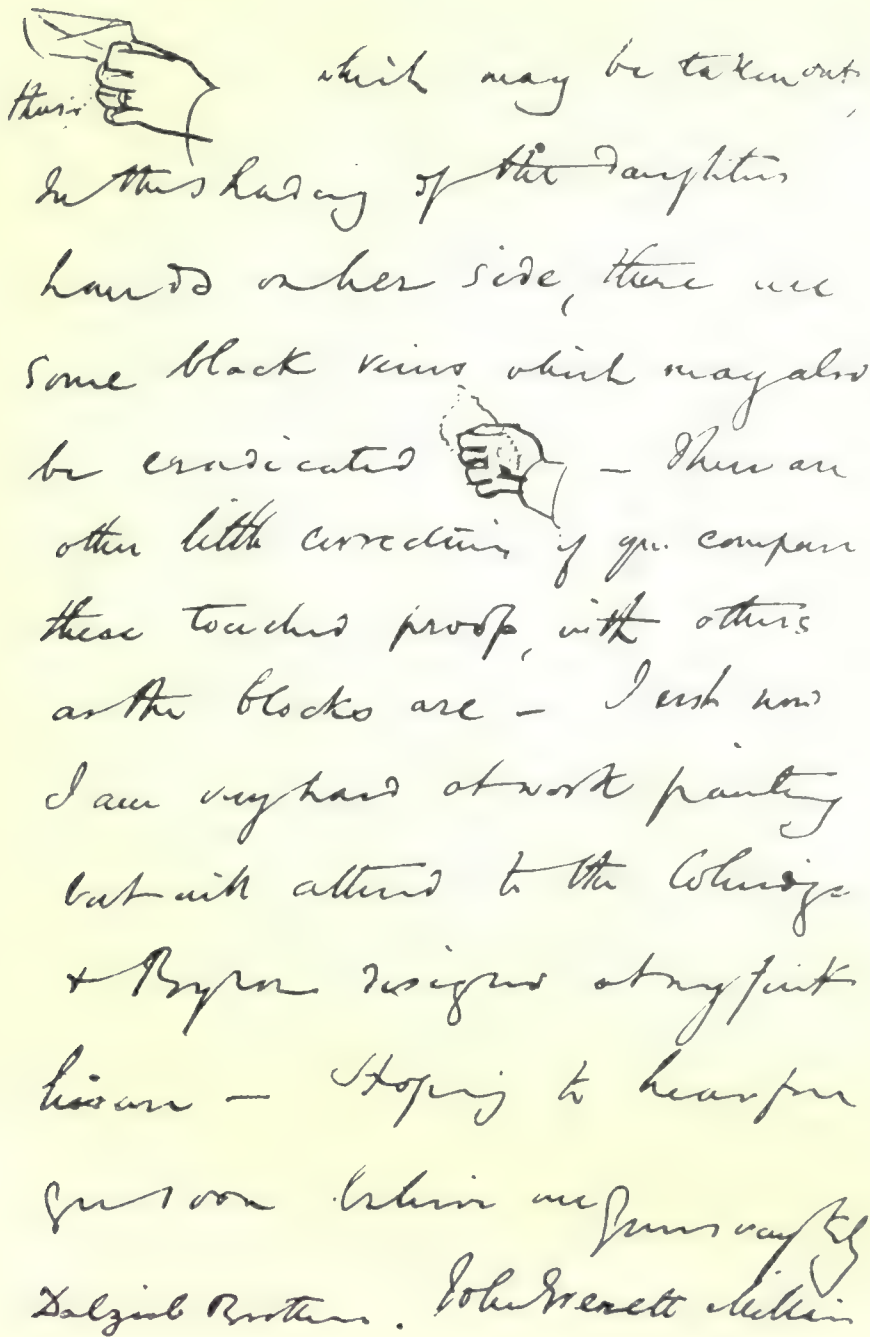 thus which may be taken out,
In the shading of the daughters
hands on her side, there are
some black veins which may also
be eradicated — There are
other little corrections if you compare
these touched proofs, with others
as the blocks are — Just now
I am very hard at work painting
but will attend to the Coleridge
& Byron designs at my first
leisure — Hoping to hear from
you soon believe me yours very truly
Dalziel Brothers. John Everett Millais